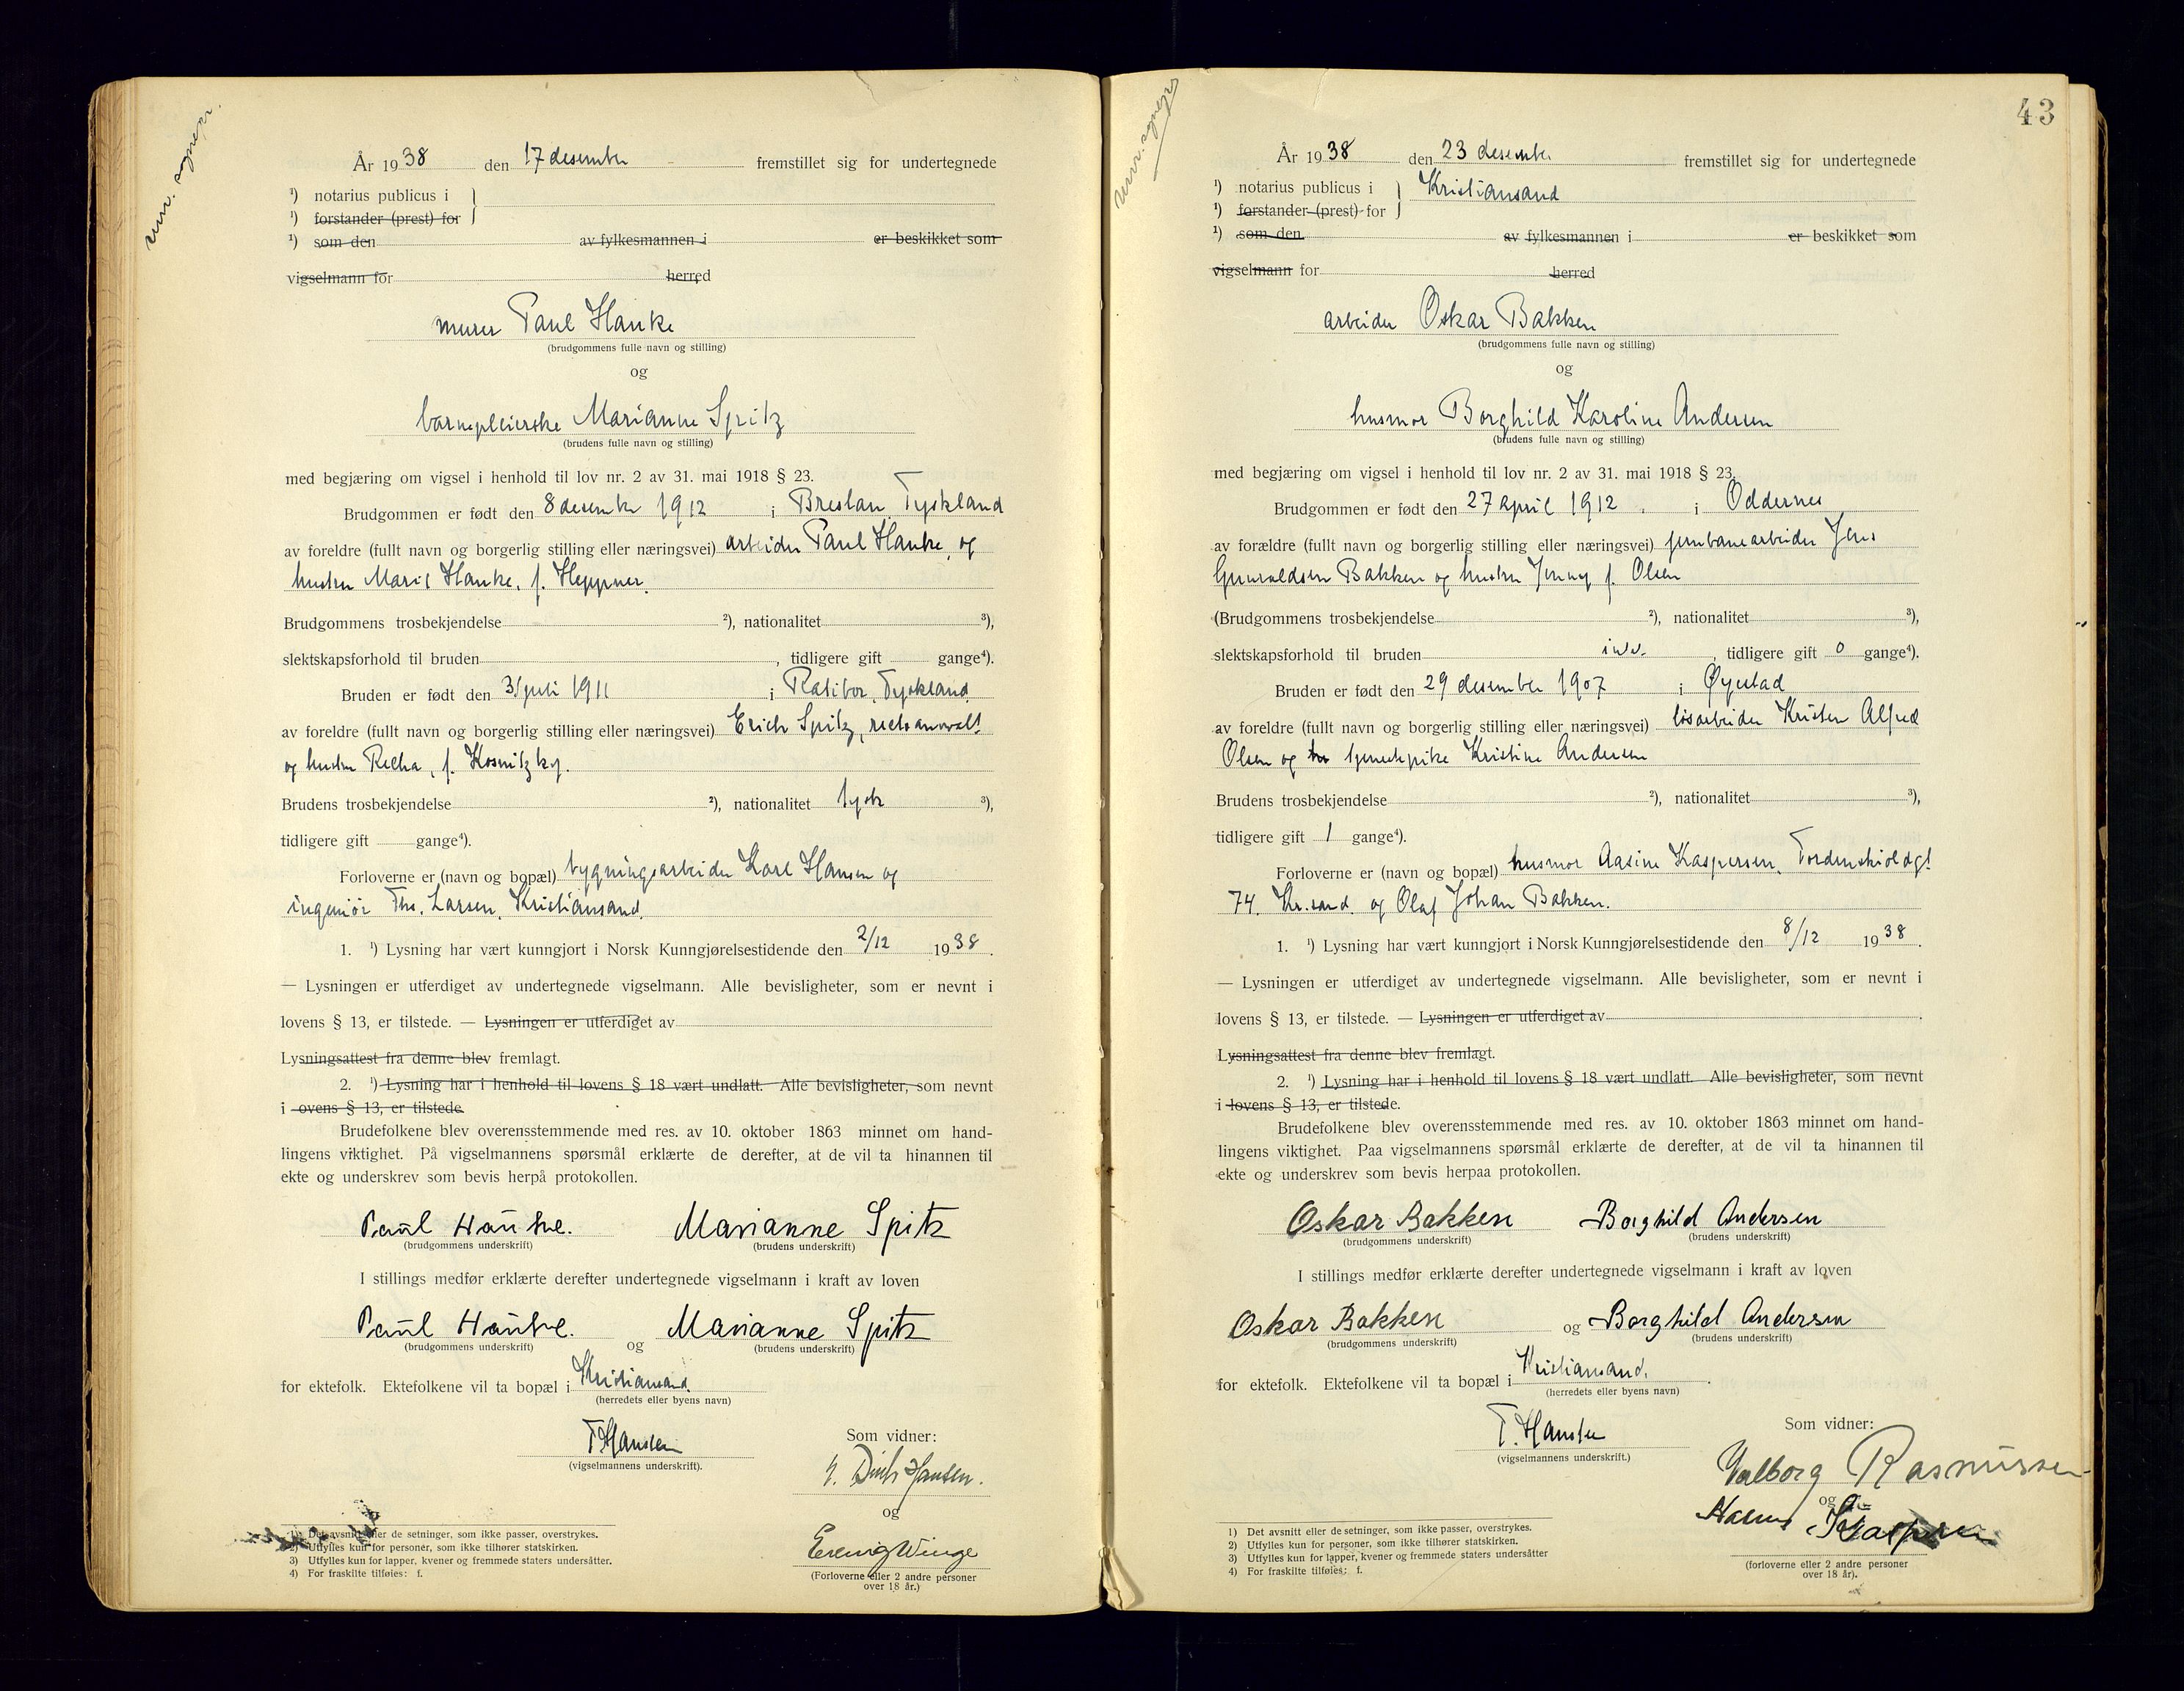 År 1938 den 17 desember fremstillet sig for undertegnede
¹) notarius publicus i
¹) forstander (prest) for
¹) som den av fylkesmannen i er beskikket som
vigselmann for herred
murer Paul Hanke
(brudgommens fulle navn og stilling)
og
barnepleierske Marianne Spitz
(brudens fulle navn og stilling)
med begjæring om vigsel i henhold til lov nr. 2 av 31. mai 1918 § 23.
Brudgommen er født den 8 desember 1912 i Breslau, Tyskland
av foreldre (fullt navn og borgerlig stilling eller næringsvei) arbeider Paul Hanke, og
hustru Marie Hanke, f. Heppner.
Brudgommens trosbekjendelse ²), nationalitet ³),
slektskapsforhold til bruden , tidligere gift gange⁴).
Bruden er født den 31 juli 1911 i Ratibor, Tyskland
av foreldre (fullt navn og borgerlig stilling eller næringsvei) Erich Spitz, rechtsanwalt
og hustru f. Kosnitzky.
Brudens trosbekjendelse ²), nationalitet tysk ³),
tidligere gift gange⁴).
Forloverne er (navn og bopæl) bygningsarbeider Karl Hansen og
ingeniør Ths. Larsen, Kristiansand.
1. ¹) Lysning har vært kunngjort i Norsk Kunngjørelsestidende den 2/12 1938.
— Lysningen er utferdiget av undertegnede vigselmann. Alle bevisligheter, som er nevnt i
lovens § 13, er tilstede. — Lysningen er utferdiget av
Lysningsattest fra denne blev fremlagt.
2. ¹) Lysning har i henhold til lovens § 18 vært undlatt. Alle bevisligheter, som nevnt
i ovens § 13, er tilstede.
Brudefolkene blev overensstemmende med res. av 10. oktober 1863 minnet om hand-
lingens viktighet. På vigselmannens spørsmål erklærte de derefter, at de vil ta hinannen til
ekte og underskrev som bevis herpå protokollen.
Paul Hanke. Marianne Spitz
(brudgommens underskrift) (brudens underskrift)
I stillings medfør erklærte derefter undertegnede vigselmann i kraft av loven
Paul Hanke. og Marianne Spitz
(brudgommens underskrift) (brudens underskrift)
for ektefolk. Ektefolkene vil ta bopæl i Kristiansand.
(herredets eller byens navn)
T. Hansen
(vigselmannens underskrift).
Som vidner:
Hansen.
og
Winge
(Forloverne eller 2 andre personer
over 18 år.)
1) Det avsnitt eller de setninger, som ikke passer, overstrykes.
2) Utfylles kun for personer, som ikke tilhører statskirken.
3) Utfylles kun for lapper, kvener og fremmede staters undersåtter.
4) For fraskilte tilføies: f.
43
År 1938 den 23 desember fremstillet sig for undertegnede
¹) notarius publicus i Kristiansand
¹) forstander (prest) for
¹) som den av fylkesmannen i er beskikket som
vigselmann for herred
arbeider Oskar Bakken
(brudgommens fulle navn og stilling)
og
husmor Borghild Karoline Andersen
(brudens fulle navn og stilling)
med begjæring om vigsel i henhold til lov nr. 2 av 31. mai 1918 § 23.
Brudgommen er født den 27 april 1912 i Oddernes
av forældre (fullt navn og borgerlig stilling eller næringsvei) jernbanearbeider Jens
Gunvaldsen Bakken og hustru Jenny f. Olsen
(Brudgommens trosbekjendelse ²), nationalitet ³),
slektskapsforhold til bruden , tidligere gift 0 gange⁴).
Bruden er født den 29 desember 1907 i Øyestad
av foreldre (fullt navn og borgerlig stilling eller næringsvei) løsarbeider Kristen Alfred
Olsen og tjenestepike Kristine Andersen
Brudens trosbekjendelse ²), nationalitet ³),
tidligere gift 1 gange⁴).
Forloverne er (navn og bopæl) husmor Aasine Kaspersen, Tordenskioldgt
74, Kr.sand. og Olaf Johan Bakken.
1. ¹) Lysning har vært kunngjort i Norsk Kunngjørelsestidende den 8/12 1938.
— Lysningen er utferdiget av undertegnede vigselmann. Alle bevisligheter, som er nevnt i
lovens § 13, er tilstede. — Lysningen er utferdiget av .
Lysningsattest fra denne blev fremlagt.
2. ¹) Lysning har i henhold til lovens § 18 vært undlatt. Alle bevisligheter, som nevnt
i lovens § 13, er tilstede.
Brudefolkene blev overensstemmende med res. av 10. oktober 1863 minnet om hand-
lingens viktighet. Paa vigselmannens spørsmål erklærte de derefter, at de vil ta hinannen til
ekte og underskrev som bevis herpaa protokollen.
Oskar Bakken Borghild Andersen
(brudgommens underskrift) (brudens underskrift)
I stillings medfør erklærte derefter undertegnede vigselmann i kraft av loven
Oskar Bakken og Borghild Andersen
(brudgommens underskrift) (brudens underskrift)
for ektefolk. Ektefolkene vil ta bopæl i Kristiansand.
(herredets eller byens navn)
T. Hansen
(vigselmannens underskrift.)
Som vidner:
Valborg Rasmussen
og
(forloverne eller 2 andre personer
over 18 år).
1) Det avsnitt eller de setninger, som ikke passer, overstrykes.
2) Utfylles kun for personer, som ikke tilhører statskirken.
3) Utfylles kun for lapper, kvener og fremmede staters undersåtter
4) For fraskilte tilføies: f.